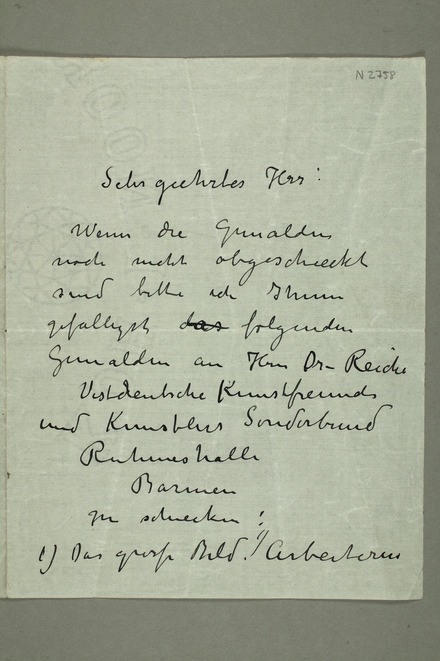 N 2758
Sehr geehrtes Herr!
Wenn die Gemalden
noch nicht abgeschickt
sind bitte ich Ihnen
gefalligst das folgenden
Gemalden an Herrn Dr- Reiche
Vestdeutsche Kunstfreunds
und Kunstlers Sonderbund
Ruhmeshalle
Barmen
zu schicken!
1) Das grosse Bild. "Arbeitern